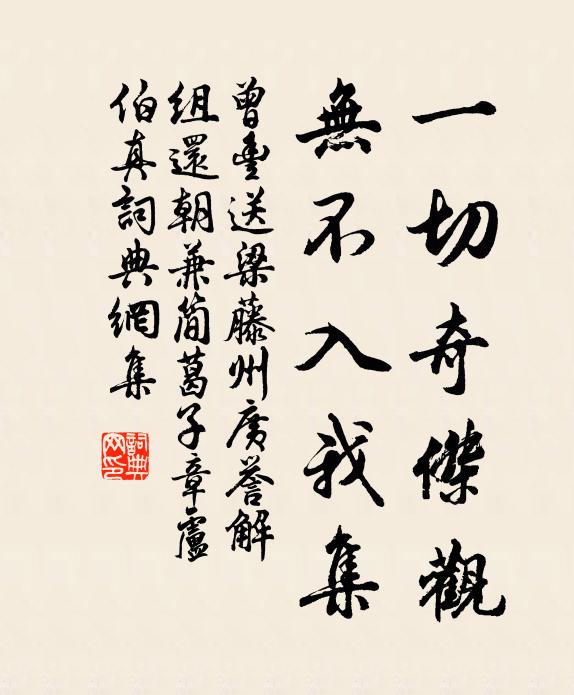 一切奇傑觀
無不入我集
曾豊送梁藤州廣譽解
組還朝兼簡葛子章盧
伯真詞典網集
詞典网印